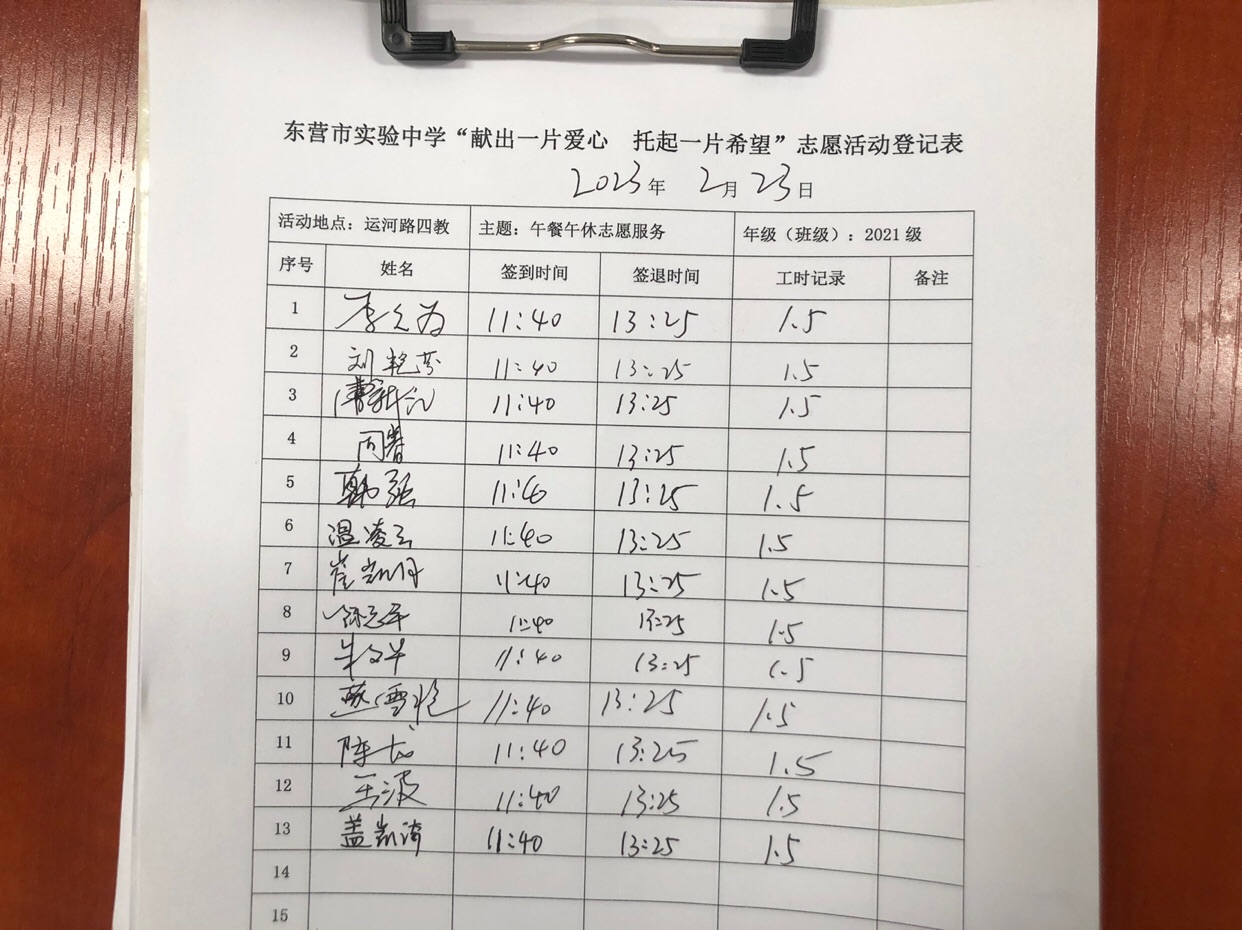 东营市实验中学“献出一片爱心 托起一片希望”志愿活动登记表
2023年 2月23日
活动地点：运河路四教 主题：午餐午休志愿服务 年级（班级）：2021级
序号 姓名 签到时间 签退时间 工时记录 备注
1 11:40 13:25 1.5
2 刘艳芬 11:40 13:25 1.5
3 11:40 13:25 1.5
4 11:40 13:25 1.5
5 韩强 11:40 13:25 1.5
6 温凌云 11:40 13:25 1.5
7 崔凯丹 11:40 13:25 1.5
8 11:40 13:25 1.5
9 11:40 13:25 1.5
10 11:40 13:25 1.5
11 陈龙 11:40 13:25 1.5
12 王波 11:40 13:25 1.5
13 盖凯涛 11:40 13:25 1.5
14
15